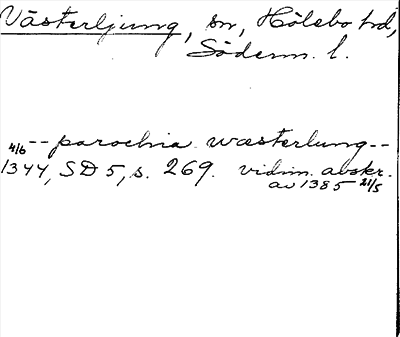 Västerljung, sn, Hölebo hd,
Söderm. l.
-- parochia wæsterlung --
4/6 1344, SD 5, s. 269. vidim. avskr.
av 1385 21/5